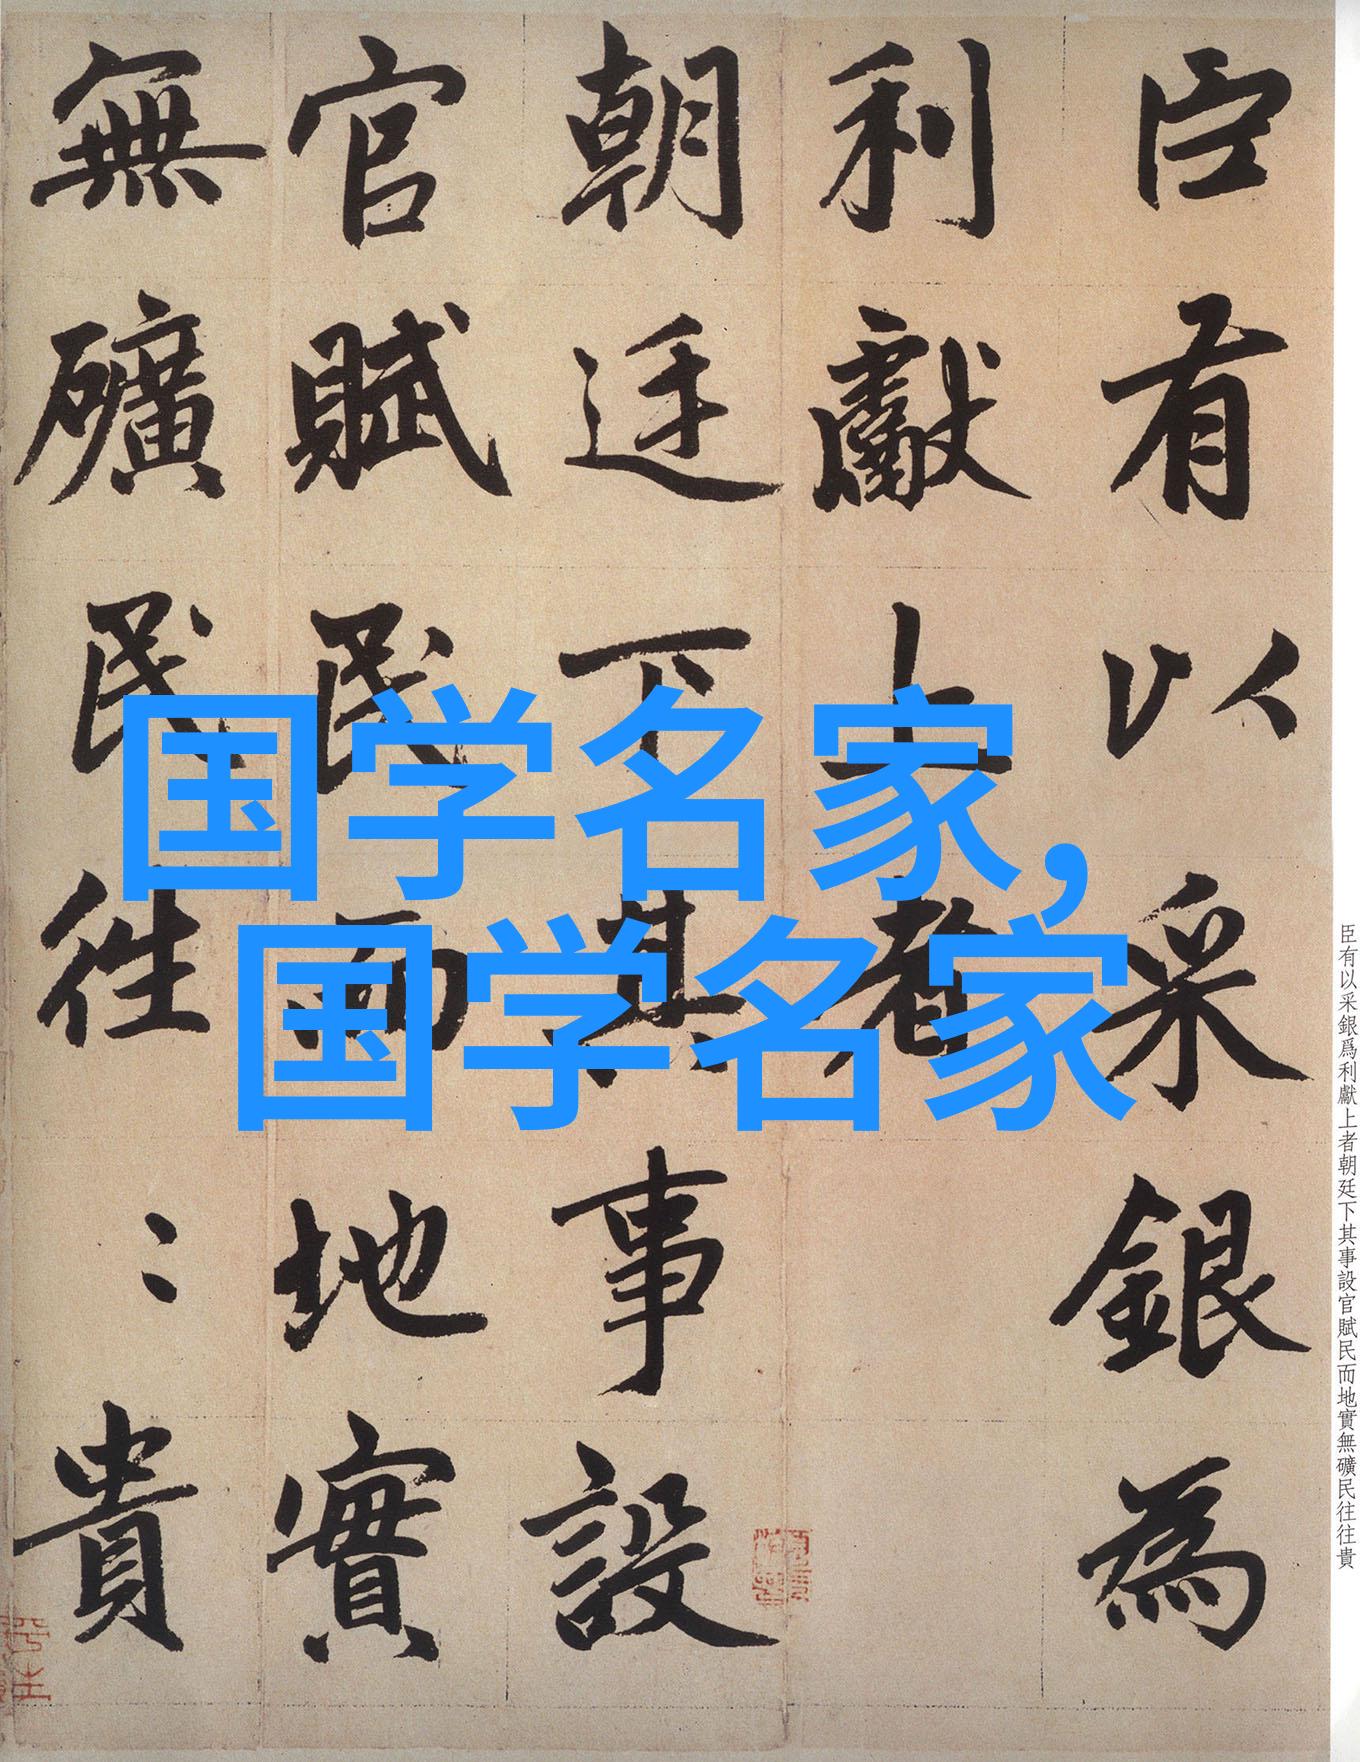 臣有以采銀為
利獻上者
朝廷下其事設
官賦民而地實
無礦民往〻貴
国学名家,
国学名家
臣有以采銀爲利獻上者朝廷下其事設官賦民而地實無礦民往往貴